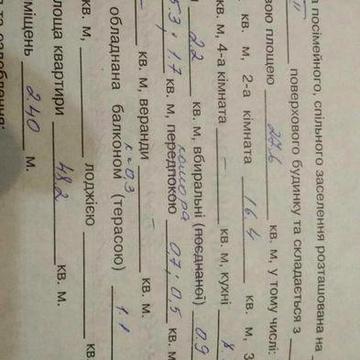 а посімейного, спільного заселення розташована на
поверхового будинку та складається з
вою площею 27.6 кв. м, у тому числі:
кв. м, 2-а кімната 16.4 кв. м, 3
кв. м, 4-а кімната – кв. м, кухні 8.
2.2 кв. м, вбиральні (поєднаної) 0.9
комора
5.3; 1.7 кв. м, передпокою 0,7; 0,5 кв. м
– кв. м, веранди – кв. м.
к=0.3
обладнана балконом (терасою) 1.1
кв. м, лоджією кв.
лоща квартири 48.2 кв. м.
міщень 2.40 м.